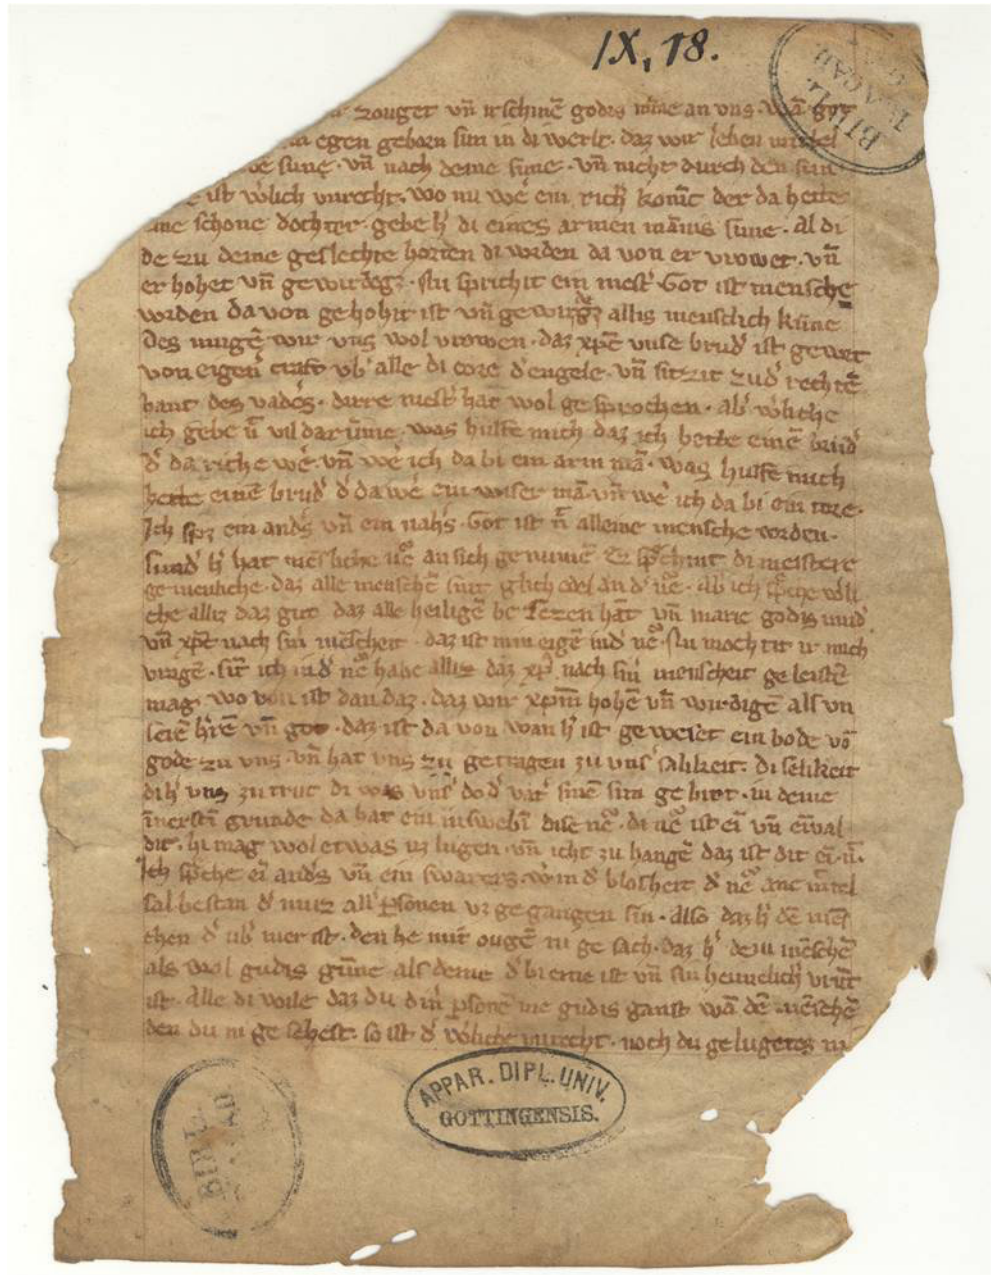 IX, 18.
BIBL. ACAD.
zouget vn̄ irschinē godis mīne an vns. wā got
egen geborn sun in di werlt. daz wir leben mit
sune. vn̄ nach deme sune. vn̄ nicht durch den sun
ist w̓lich vnrecht. wo nu wē ein rich̓ konīc der da hette
eine schone dochter. gebe h̓ di eines armen mānis sune. Al di
de zu deme geslechte horten di wrden da von er vrowet. vn̄
er hohet vn̄ gewirdegꝫ. Nu sprichit ein meist̓. Got ist mensche
wrden da von gehohit ist vn̄ gewirdegꝫ allis menslich kūne
des muge wir vns wol vrowen. daz xp̄c vnse brud̓ ist
von eigen̓ craft vb̓ alle di core d̓ engele. vn̄ sitzit zu d̓ rechtē
hant des vad̓s. dirre meist̓ hat wol gesprochen. ab̓ w̓liche
ich gebe nit vil dar ūme. was hulfe mich daz ich hette einē brud̓
d̓ da riche wē. vn̄ wē ich da bi ein arm mā. was hulfe mich
hette einē brud̓ d̓ da wē ein wiser mā. vn̄ wē ich da bi ein tore.
Ich sp̄ꝫ ein and̓s vn̄ ein nah̓s. Got ist n̄ alleine mensche worden.
sund̓ h̓ hat mēsliche nē an sich genumē. Ez sp̄chint di meistere
gemenliche. daz alle menschē sint glich edel an d̓ nē. Ab̓ ich sp̄che w̓li
che alliz daz gut daz alle heiligē besezen hāt vn̄ marie godis mud̓
vn̄ xp̄c nach sin̓ mēscheit. daz ist min eigē in d̓ nē. Nu mochtit ir mich
vragē. sīt ich in d̓ nē habe allis daz xp̄c nach sin̓ menscheit geleistē
mag. wo von ist dan daz. daz wir xp̄m hohē vn̄ wirdigē als vn
seren h̓rē vn̄ got. daz ist da von wan h̓ ist geweset ein bode vō
gode zu vns. vn̄ hat vns zu getragen zu vns̓ salikeit. Di selikeit
di h̓ vns zu truc di was vns̓ do d̓ vat̓ sinē sun gebirt. in deme
īnerstē grunde da hat ein inswebī dise nē. di nē ist eī vn̄ eīval
dit. hi mag wol etwas uz lugen. vn̄ icht zu hangē daz ist dit eī. n̄.
Ich sp̄che eī and̓s vn̄ ein swarers. w̓ in d̓ blosheit d̓ nē ane mitel
sal bestan d̓ muz all̓ p̱sonen vz gegangen sin. also daz h̓ dē mēs
chen d̓ vb̓ mer ist. den he mit ougē ni gesach. daz h̓ deme mēschē
als wol gudis gūne als deme d̓ bi eme ist vn̄ sin heimelich̓ vrūt
ist. Alle di wile daz du din̓ p̱sonē me gudis ganst wā dē mēschē
den du ni gesehest. so ist d̓ w̓liche vnrecht. noch du gelugetes ni
APPAR. DIPL. UNIV.
GOTTINGENSIS.
BIBL. ACAD.